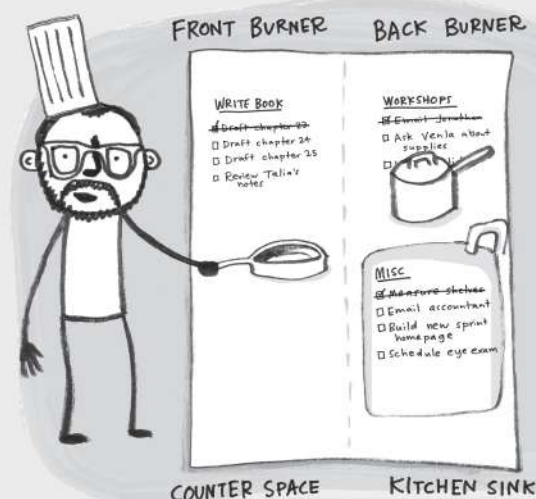 FRONT BURNER
BACK BURNER
WRITE BOOK
Draft chapter 23
Draft chapter 24
Draft chapter 25
Review Talia's
notes
WORKSHOPS
Email Jonathan
Ask Venla about
supplies
MISC
Measure shelves
Email accountant
Build new sprint
homepage
Schedule eye exam
COUNTER SPACE
KITCHEN SINK